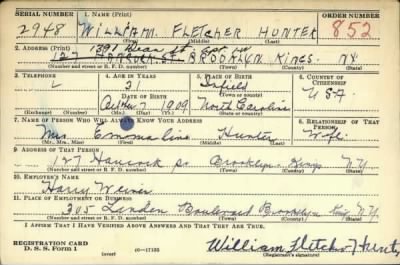 SERIAL NUMBER 1. NAME (Print) ORDER NUMBER
2948 WILLIAM FLETCHER HUNTER 852
(First) (Middle) (Last)
2. ADDRESS (Print) 1391 Dean St
127 HANCOCK St. BROOKLYN KINGS NY
(Number and street or R. F. D. number) (Town) (County) (State)
3. TELEPHONE 4. AGE IN YEARS 5. PLACE OF BIRTH 6. COUNTRY OF CITIZENSHIP
31 Enfield
DATE OF BIRTH (Town or county) USA
7 1909 North Carolina
(Exchange) (Number) (Mo.) (Day) (Yr.) (State or country)
7. NAME OF PERSON WHO WILL ALWAYS KNOW YOUR ADDRESS 8. RELATIONSHIP OF THAT PERSON
Mrs. Emma line Hunter Wife
(Mr., Mrs., Miss) (First) (Middle) (Last)
9. ADDRESS OF THAT PERSON
127 Hancock St Brooklyn Kings N.Y.
(Number and street or R. F. D. number) (Town) (County) (State)
10. EMPLOYER'S NAME
Harry Weiner
11. PLACE OF EMPLOYMENT OR BUSINESS
305 Linden Boulevard Brooklyn N.Y.
(Number and street or R. F. D. number) (Town) (County) (State)
I AFFIRM THAT I HAVE VERIFIED ABOVE ANSWERS AND THAT THEY ARE TRUE.
REGISTRATION CARD
D. S. S. Form 1 (over) 16—17105 William Fletcher Hunter
(Registrant's signature)